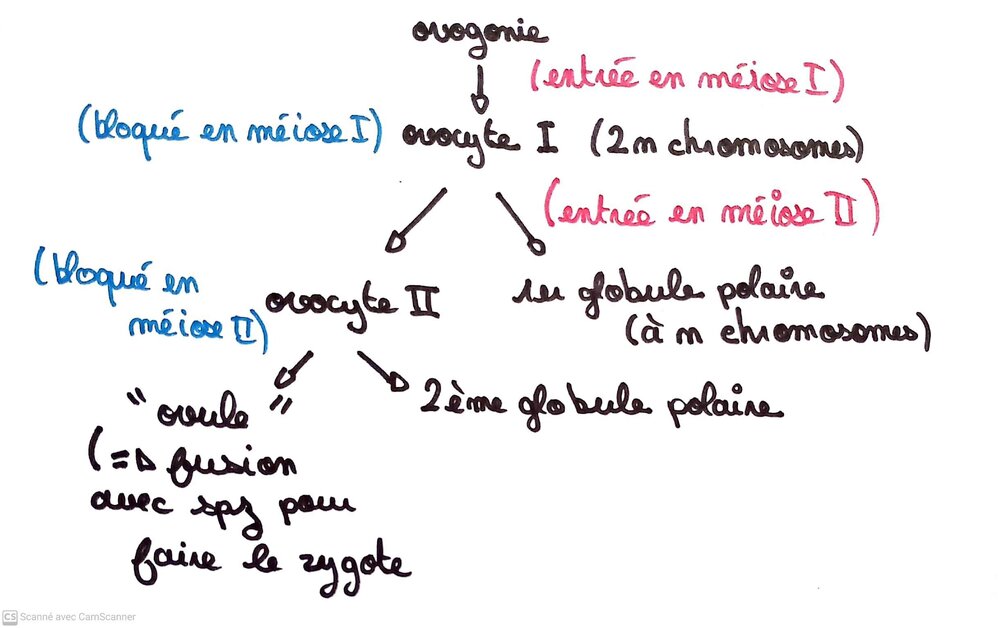 ovogonie
(entrée en méiose I)
(bloqué en méiose I) ovocyte I (2n chromosomes)
(entrée en méiose II)
(bloqué en
méiose II)
ovocyte II
1er globule polaire
(à n chromosomes)
"ovule"
2ème globule polaire
(=> fusion
avec spz pour
faire le zygote
CS Scanné avec CamScanner